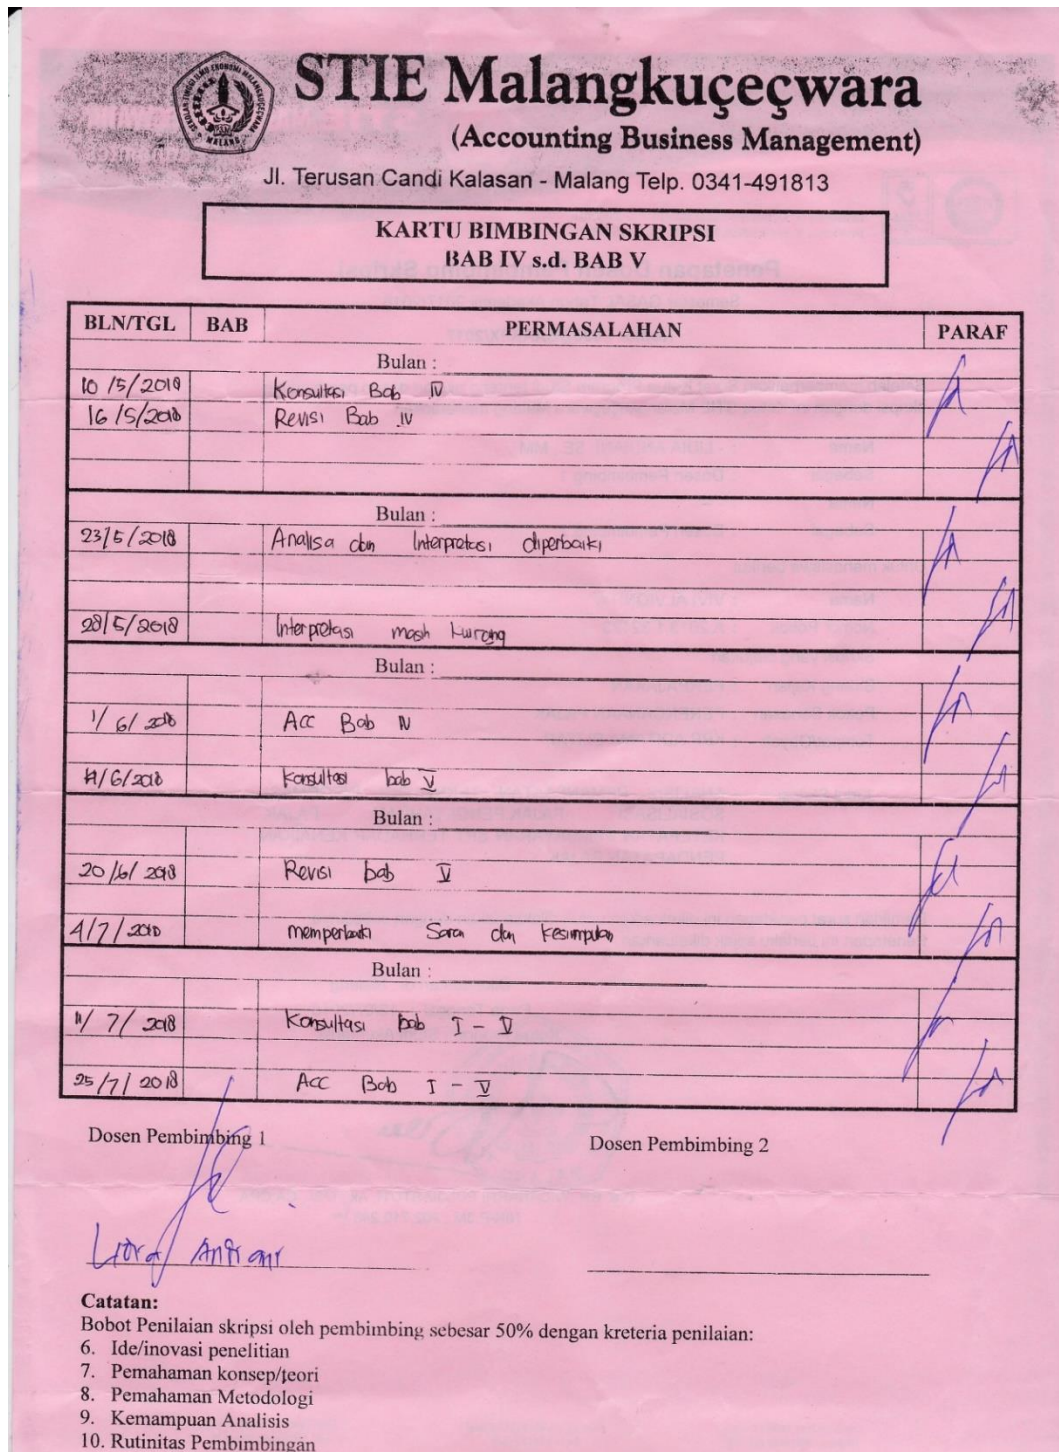 STIE Malangkuçeçwara
(Accounting Business Management)
Jl. Terusan Candi Kalasan - Malang Telp. 0341-491813
KARTU BIMBINGAN SKRIPSI
BAB IV s.d. BAB V
BLN/TGL BAB PERMASALAHAN PARAF
Bulan :
10 /5/2018 Konsultasi Bab IV
16 /5/2018 Revisi Bab IV
Bulan :
23/5/2018 Analisa dan Interpretasi diperbaiki
28/5/2018 Interpretasi masih kurang
Bulan :
1/ 6/ 2018 Acc Bab IV
/6/2018 Konsultasi bab V
Bulan :
20 /6/ 2018 Revisi bab V
4/7/2018 memperbaiki Saran dan Kesimpulan
Bulan :
11/ 7/ 2018 Konsultasi Bab I - V
25/7/2018 Acc Bab I - V
Dosen Pembimbing 1 Dosen Pembimbing 2
Catatan:
Bobot Penilaian skripsi oleh pembimbing sebesar 50% dengan kreteria penilaian:
6. Ide/inovasi penelitian
7. Pemahaman konsep/teori
8. Pemahaman Metodologi
9. Kemampuan Analisis
10. Rutinitas Pembimbingan